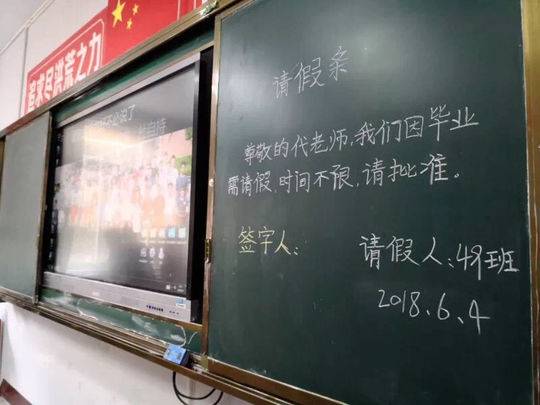 追求尽洪荒之力
不必说了
请假条
尊敬的代老师，我们因毕业
需请假，时间不限，请批准。
签字人：
请假人：49班
2018、6、4